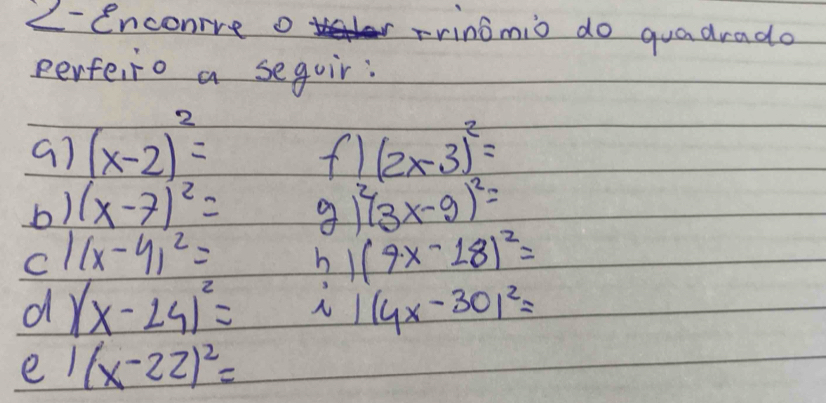 2-Encontre o trinômio do quadrado
perfeito a seguir:
a) (x-2)²= f) (2x-3)²=
b) (x-7)²= g) (3x-9)²=
c) (x-4)²=
d) (x-14)²= i) (4x-30)²=
e) (x-22)²=